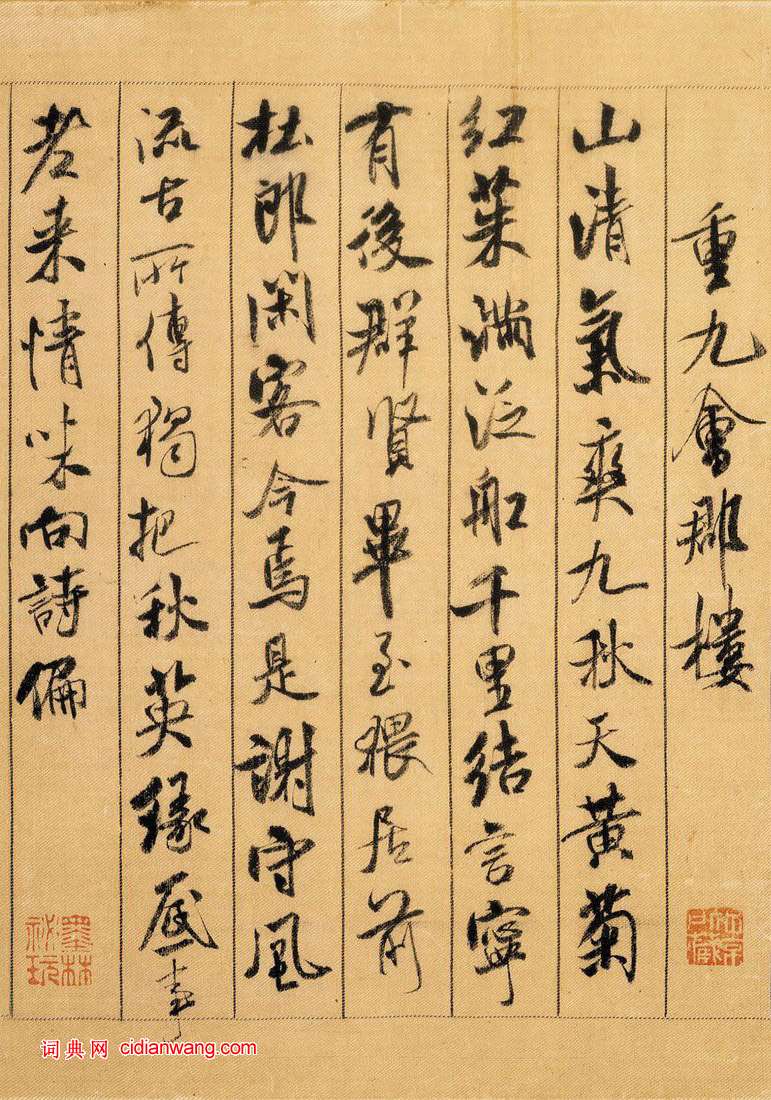 重九會郡樓
山清氣爽九秋天黃菊
紅茱滿泛舡千里結言寧
有後群賢畢至猥居前
杜郎閑客今焉是謝守風
流古所傳獨把秋英緣底事
老來情味向詩偏
墨林
祕玩
词典网 cidianwang.com